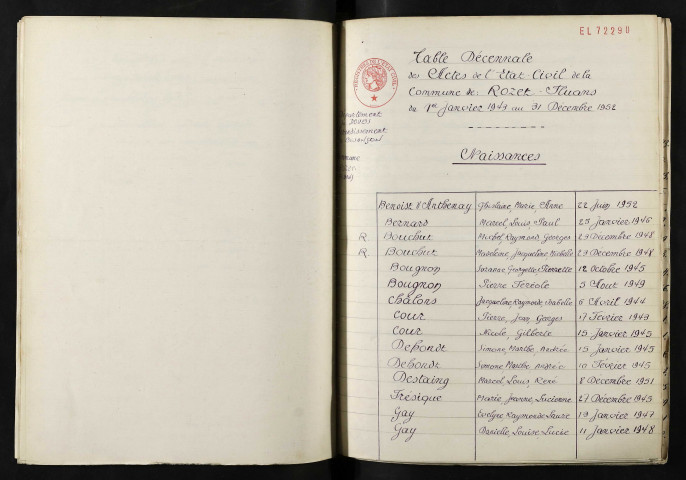 EL 72290
Table Décennale
des Actes de l'Etat-Civil de la
Commune de: Rozet-Fluans
du 1er Janvier 1943 au 31 Décembre 1952
Naissances
Benoist d'Anthenay Ghislaine, Marie, Anne 22 Juin 1952
Bernard Marcel, Louis, Paul 25 Janvier 1946
R. Bouchut Michel, Raymond, Georges 29 Décembre 1948
R. Bouchut Jacqueline Michelle 29 Décembre 1948
Bougnon Suzanne Georgette, Pierrette 12 Octobre 1945
Bougnon Pierre 5 Août 1949
Châlons Jacqueline, Raymonde, Isabelle 6 Avril 1944
Cour Pierre, Jean, Georges 17 Février 1943
Cour Nicole, Gilberte 15 Janvier 1945
Debondt Simone, Marthe, Andrée 15 Janvier 1945
Debondt Simone Marthe Andrée 10 Février 1945
Destaing Marcel, Louis, René 8 Décembre 1951
Trésique Marie, Jeanne, Lucienne 27 Décembre 1943
Gay Evelyne Raymonde Laure 19 Janvier 1947
Gay Danielle, Louise Lucie 11 Janvier 1948